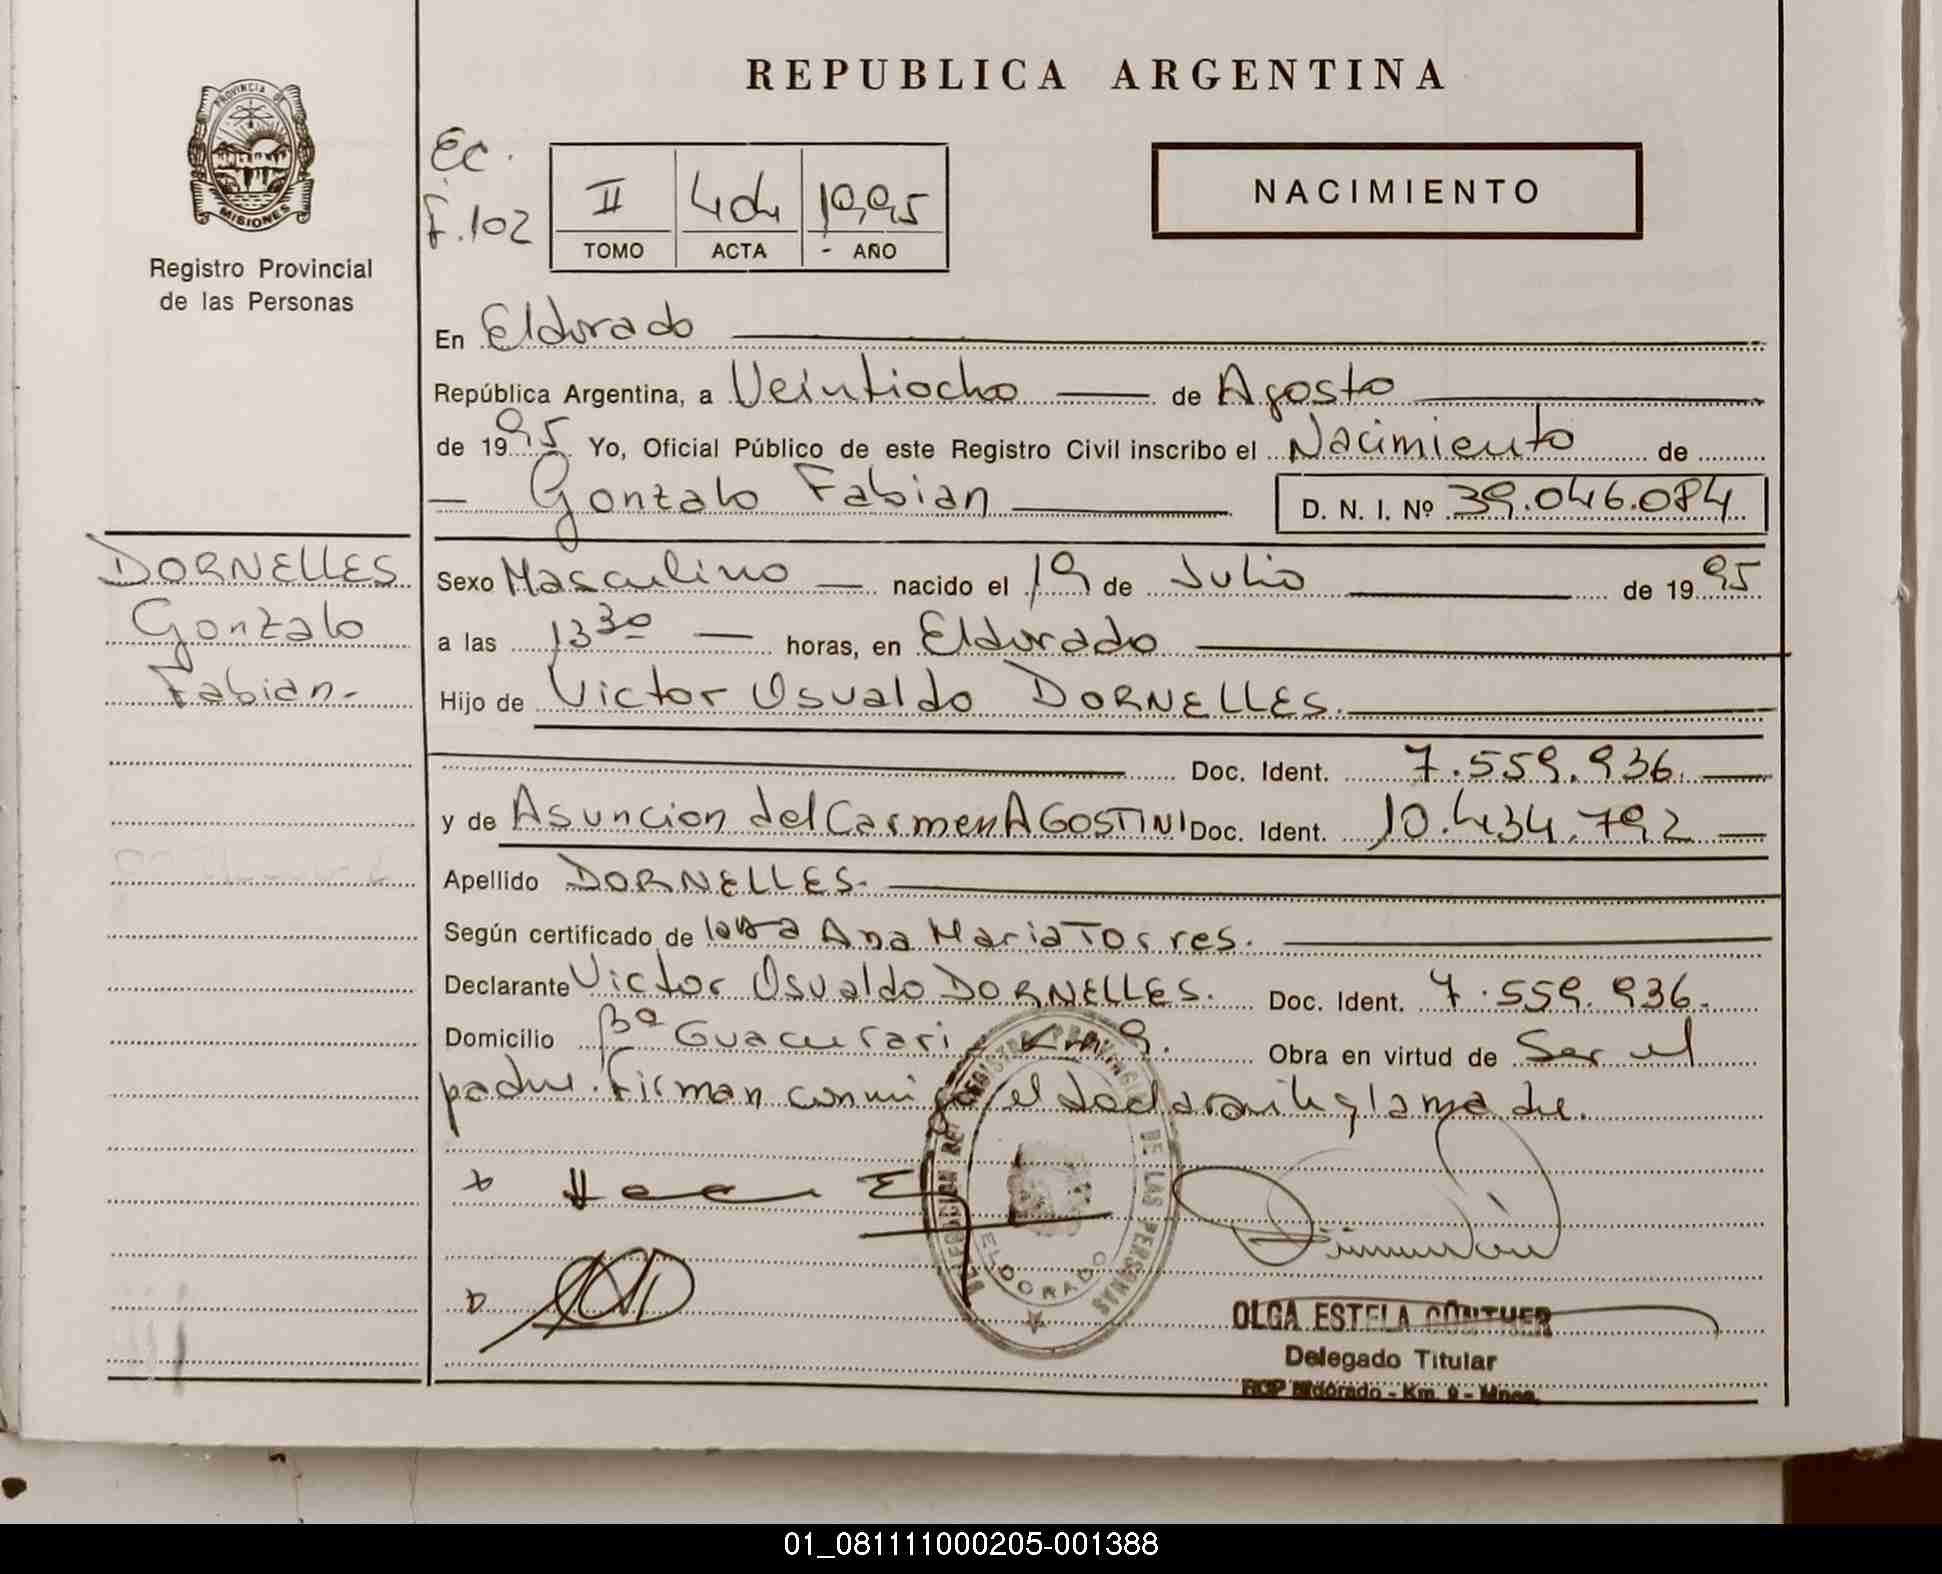 REPUBLICA ARGENTINA
PROVINCIA DE
MISIONES
Registro Provincial
de las Personas
EC.
F.102
II 404 1995
TOMO ACTA - AÑO
NACIMIENTO
En Eldorado
República Argentina, a Veintiocho de Agosto
de 1995 Yo, Oficial Público de este Registro Civil inscribo el Nacimiento de
Gonzalo Fabian D. N. I. Nº 39.046.084
DORNELLES
Gonzalo
Fabian.-
Sexo Masculino nacido el 19 de Julio de 1995
a las 13 30 horas, en Eldorado
Hijo de Victor Osvaldo DORNELLES.
Doc. Ident. 7.559.936.
y de Asuncion del Carmen AGOSTINI Doc. Ident. 10.434.792
Apellido DORNELLES.
Según certificado de Ana Maria Torres.
Declarante Victor Osvaldo DORNELLES. Doc. Ident. 7.559.936.
Domicilio Bº Guacurari Km 9. Obra en virtud de Ser el
padre. Firman conmigo el declarante y la madre.
REGISTRO PROVINCIAL DE LAS PERSONAS
DELEGACION
ELDORADO
OLGA ESTELA GÜNTHER
Delegado Titular
RCP Eldorado - Km. 9 - Mnes.
01_081111000205-001388